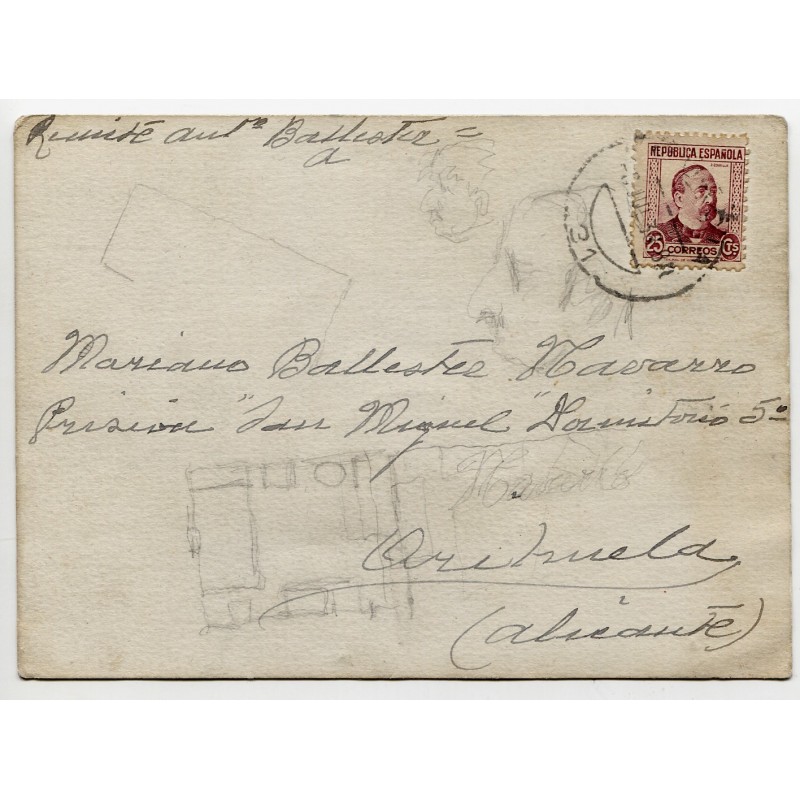 Remite Ant.º Ballester =
a
REPÚBLICA ESPAÑOLA
25 CORREOS CTS
Mariano Ballester Navarro
Prisión "San Miguel" Dormitorio 5º
Orihuela
(Alicante)